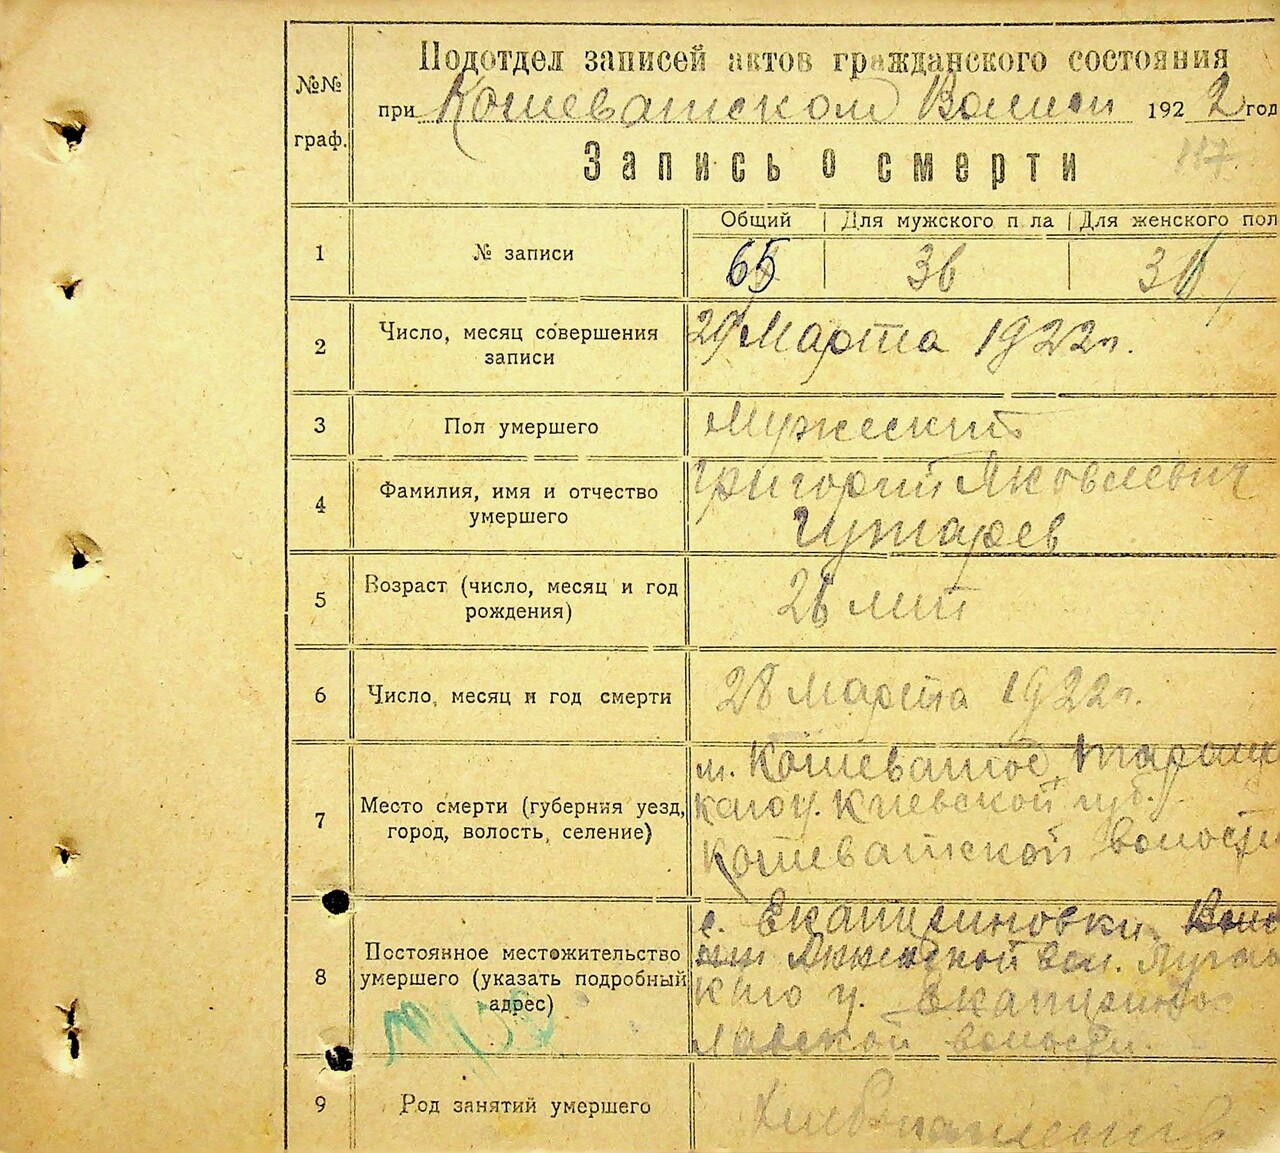 №№
граф.
Подотдел записей актов гражданского состояния
при Кошеватском 1922 год
117
Запись о смерти
Общий Для мужского п ла Для женского пол
1 № записи 65 36
2 Число, месяц совершения
записи
29 Марта 1922 г.
3 Пол умершего Мужеский
4 Фамилия, имя и отчество
умершего
Григорий Яковлевич
5 Возраст (число, месяц и год
рождения)
26 лит
6 Число, месяц и год смерти 28 Марта 1922 г.
7 Место смерти (губерния уезд,
город, волость, селение)
м. Кошеватое
у. Киевской губ.
Кошеватской волости
8 Постоянное местожительство
умершего (указать подробный
адрес)
с. Екатириновки
вол.
у. Екатирино
лавской волости.
9 Род занятий умершего